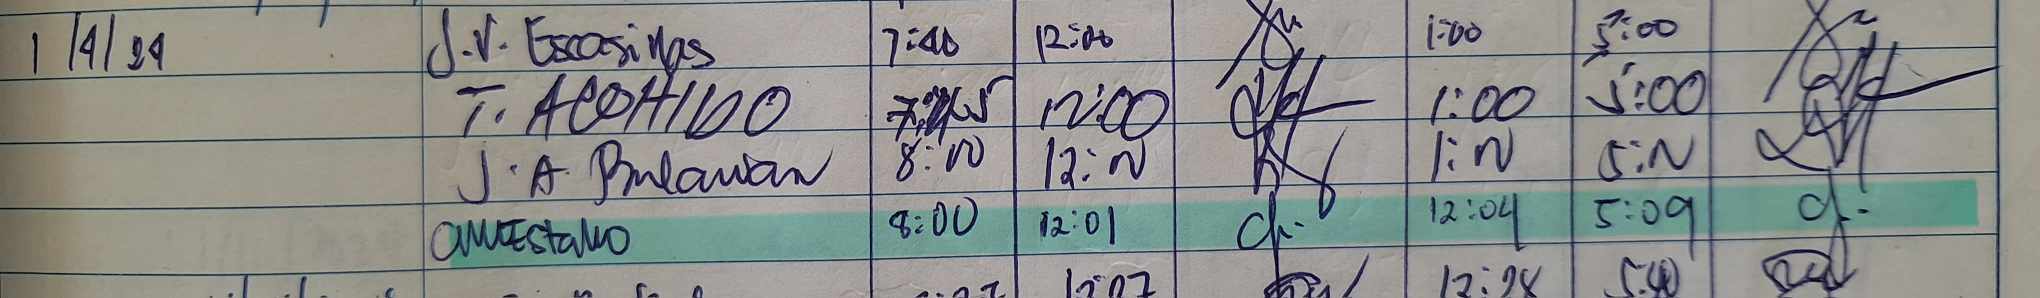 1/4/24 J.V. Escasinas 7:40 12:00 1:00 5:00
T. ACOHIDO 7:45 12:00 1:00 5:00
J.A. Bulawan 8:00 12:00 1:00 5:00
8:00 12:01 12:04 5:09
12:28 5:40